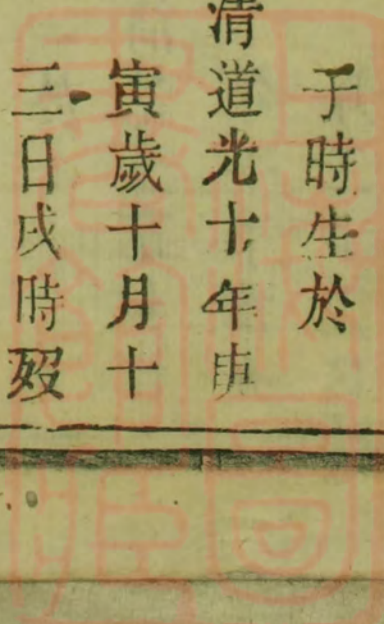 于時生於
清道光十年庚
寅歲十月十
三日戌時歿